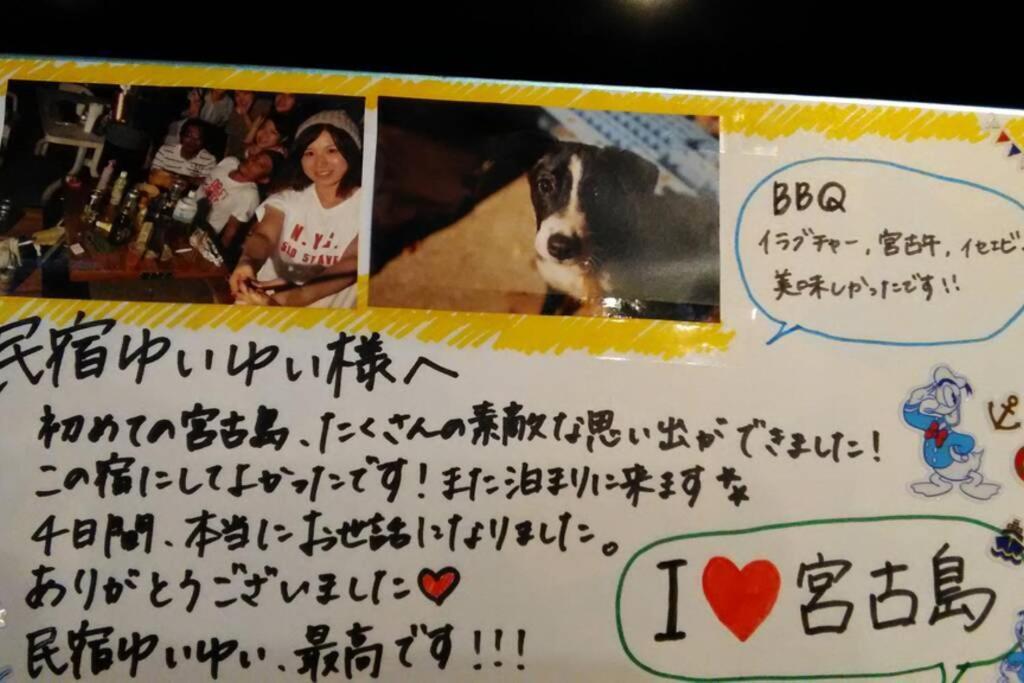 N.Y.
BBQ
イラブチャー、宮古牛、イセエビ
美味しかったです!!
民宿ゆいゆい様へ
初めての宮古島、たくさんの素敵な思い出ができました!
この宿にしてよかったです!また泊まりに来ます
4日間、本当にお世話になりました。
ありがとうございました♥
民宿ゆいゆい、最高です!!!
I♥宮古島